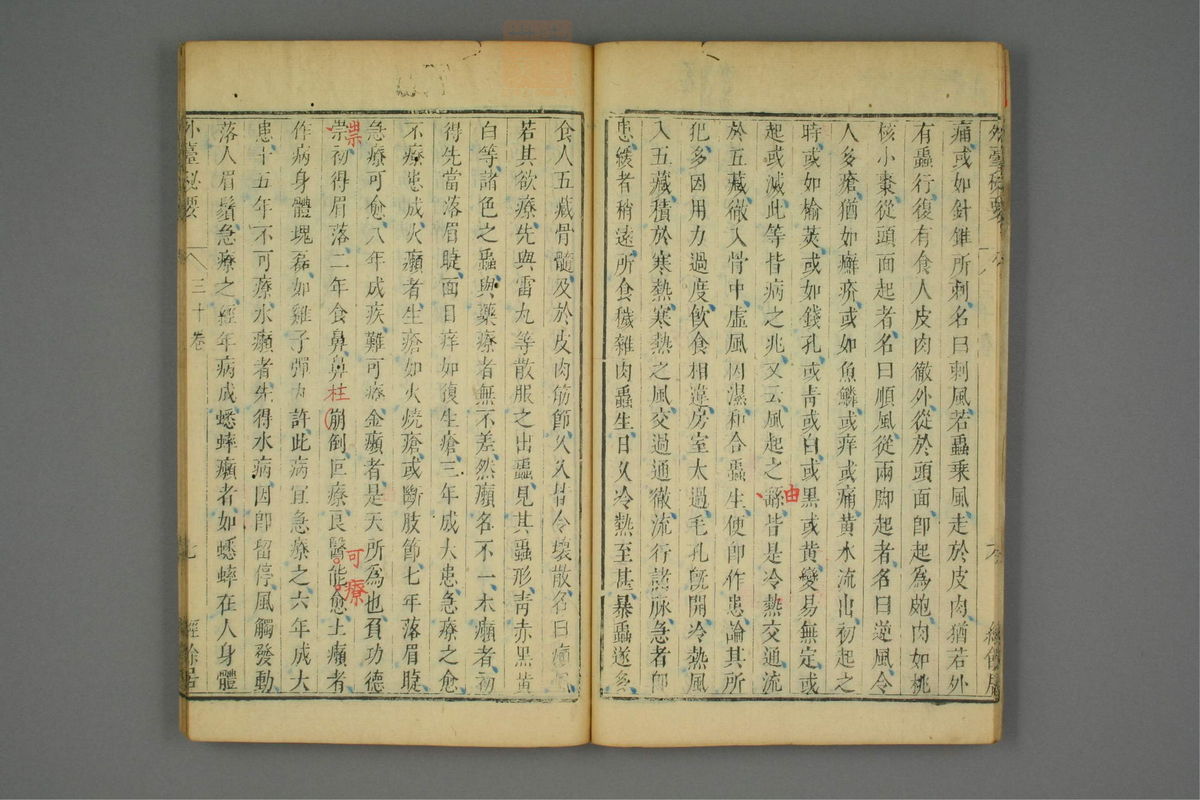 外臺秘要
痛或如針錐所刺名曰刺風若蟲乘風走於皮肉猶若外
有蟲行復有食人皮肉徹外從於頭面卽起爲皰肉如桃
核小棗從頭面起者名曰順風從兩脚起者名曰逆風令
人多瘡猶如癬疥或如魚鱗或痒或痛黃水流出初起之
時或如榆莢或如錢孔或靑或白或黑或黃變易無定或
起或滅此等皆病之兆又云風起之繇皆是冷熱交通流
由
於五藏徹入骨中虛風因濕和合蟲生便卽作患論其所
犯多因用力過度飮食相違房室太過毛孔旣開冷熱風
入五藏積於寒熱寒熱之風交過通徹流行諸脉急者卽
患緩者稍遠所食穢雜肉蟲生日久冷熱至甚暴蟲遂多
食人五藏骨髓及於皮肉筋節久久皆令壞散名曰癩風
若其欲療先與雷丸等散服之出蟲見其蟲形靑赤黑黃
白等諸色之蟲與藥療者無不差然癩名不一木癩者初
得先當落眉睫面目痒如復生瘡三年成大患急療之愈
不療患成火癩者生瘡如火燒瘡或斷肢節七年落眉睫
急療可愈八年成疾難可療金癩者是天所爲也負功德
祟
可療
祟初得眉落二年食鼻鼻柱崩倒叵療良醫能愈土癩者
作病身體塊磊如雞子彈丸許此病宜急療之六年成大
患十五年不可療水癩者先得水病因卽留停風觸發動
落人眉鬚急療之經年病成蟋蟀癩者如蟋蟀在人身體
外臺秘要
三十卷
七
經餘居